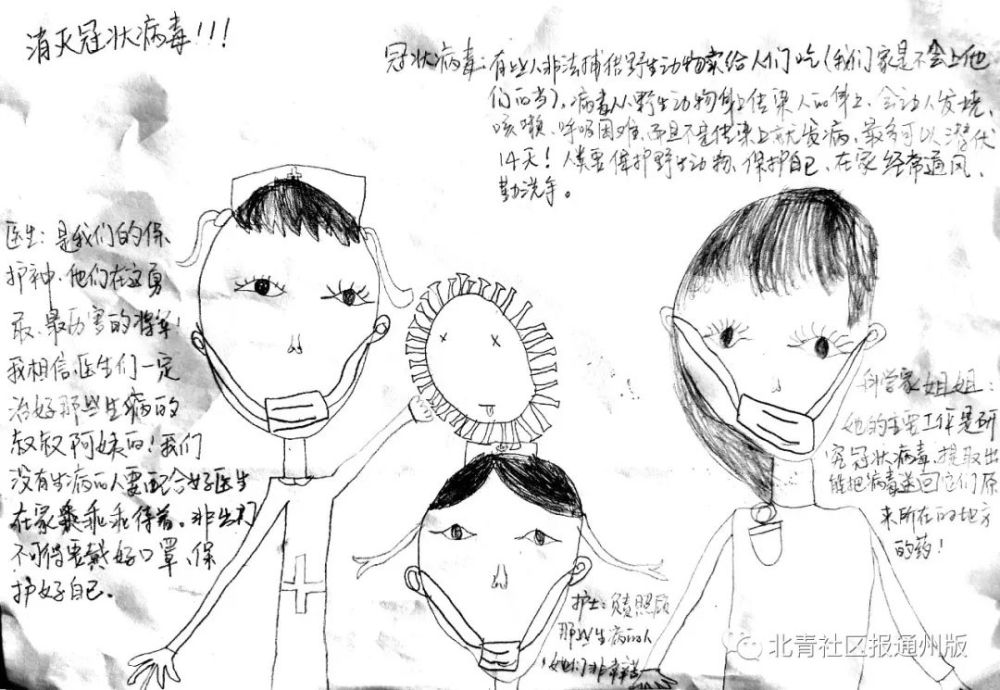 消灭冠状病毒!!!
冠状病毒:有些人非法捕供野生动物卖给人们吃(我们家是不会上他
们的当),病毒从野生动物身上传染人的身上、会让人发烧、
咳嗽、呼吸困难、而且不是传染上就发病、最多可以潜伏
14天!人类要保护野生动物、保护自己、在家经常通风、
勤洗手。
医生:是我们的保
护神、他们在这勇
敢、最厉害的将军!
我相信医生们一定
治好那些生病的
叔叔阿姨的!我们
没有生病的人要配合好医生
在家乖乖待着。非出门
不可得要戴好口罩、保
护好自己.
科学家姐姐:
她的主要工作是研
究冠状病毒、提取出
能把病毒送回它们原
来所在的地方
的药!
护士:负责照顾
那些生病的人
她们非常辛苦
北青社区报通州版